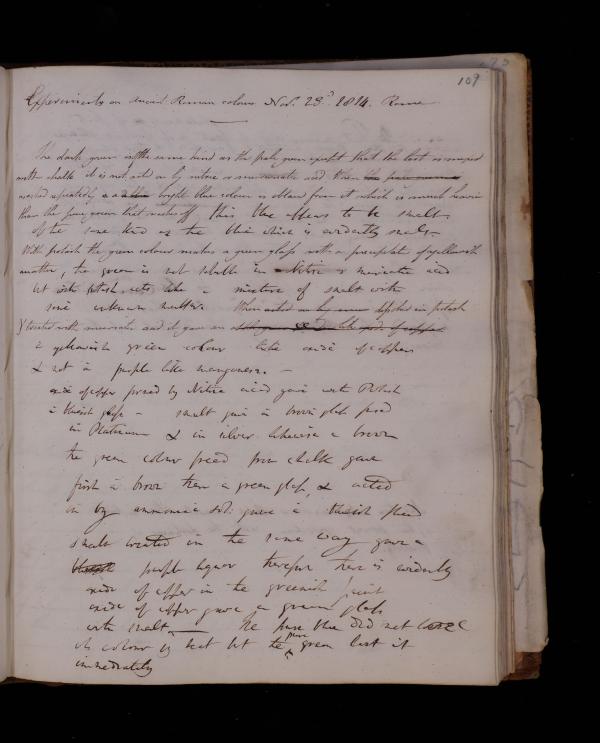 109
Experiments on ancient Roman colours Nov. 23d. 1814. Rome
The dark green is the same kind as the pale green except that the last is mixed
with chalk it is not acted on by nitric or muriatic acid when
washed repeatedly a bright blue colour is obtained from it which is much heavier
than the pure green that washes off This blue appears to be smalt
of the same kind as the blue which is evidently smalt
With potash the green colour makes a green glass with a precipitate of yellowish
matter, the green is not soluble in Nitric or muriatic acid
but with potash acts like a mixture of smalt with
some unknown matter. When acted on by defused in potash
& treated with muriatic acid it gave an
a yellowish green colour like oxide of copper
& not a purple like manganese. –
oxide of copper formed by Nitric acid gave with Potash
a blueish glass – smalt gave a brown glass fused
in Platinum & in silver likewise a brown
the green colour freed from chalk gave
first a brown then a green glass, & acted
on by ammonia sol: gave a blueish fluid
smalt treated in the same way gave a
purple liquor therefore there is evidently
oxide of copper in the greenish
oxide of copper gave a green glass
with smalt. — The pure blue did not loose
its colour by heat but the pure green lost it
immediately